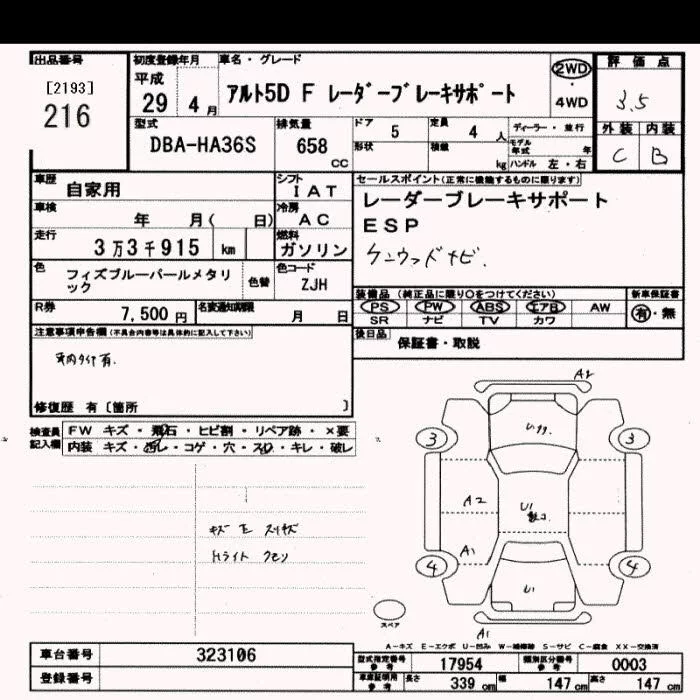 出品番号
[2193]
216
初度登録年月 車名・グレード
平成
29 4月
アルト5D F レーダーブレーキサポート
2WD
・
4WD
評価点
3.5
外装 内装
C B
型式
DBA-HA36S
排気量
658
CC
ドア 5
定員 4 人
ディーラー・並行
形状
積載 kg
モデル年式 年
ハンドル 左・右
車歴
自家用
シフト
I A T
車検
年 月( 日)
冷房
A C
走行
3万3千915 km
燃料
ガソリン
色
フィズブルーパールメタリ
ック
色替
色コード
ZJH
R券
7,500 円
名変通知期限
月 日
セールスポイント(正常に機能するものに限ります)
レーダーブレーキサポート
ESP
ケンウッドナビ.
装備品 (純正品に限り○をつけてください)
PS PW ABS エアB AW
SR ナビ TV カワ
新車保証書
有・無
後日品
保証書・取説
注意事項申告欄(不具合内容等は具体的に記入して下さい)
修復歴 有〔箇所 〕
検査員
記入欄
FW キズ・飛石・ヒビ割・リペア跡・×要
内装 キズ・汚レ・コゲ・穴・スレ・キレ・破レ
Hライト クモリ
A2
3 3
A2
U1
A1
4 4
U1
A1
スペア
A-キズ E-エクボ U-凹み W-補修跡 S-サビ C-腐食 XX-交換済
車台番号
323106
登録番号
型式指定番号
参考
17954
類別区分番号
参考
0003
車庫証明用
参考
長さ 339 cm
幅 147 cm
高さ 147 cm